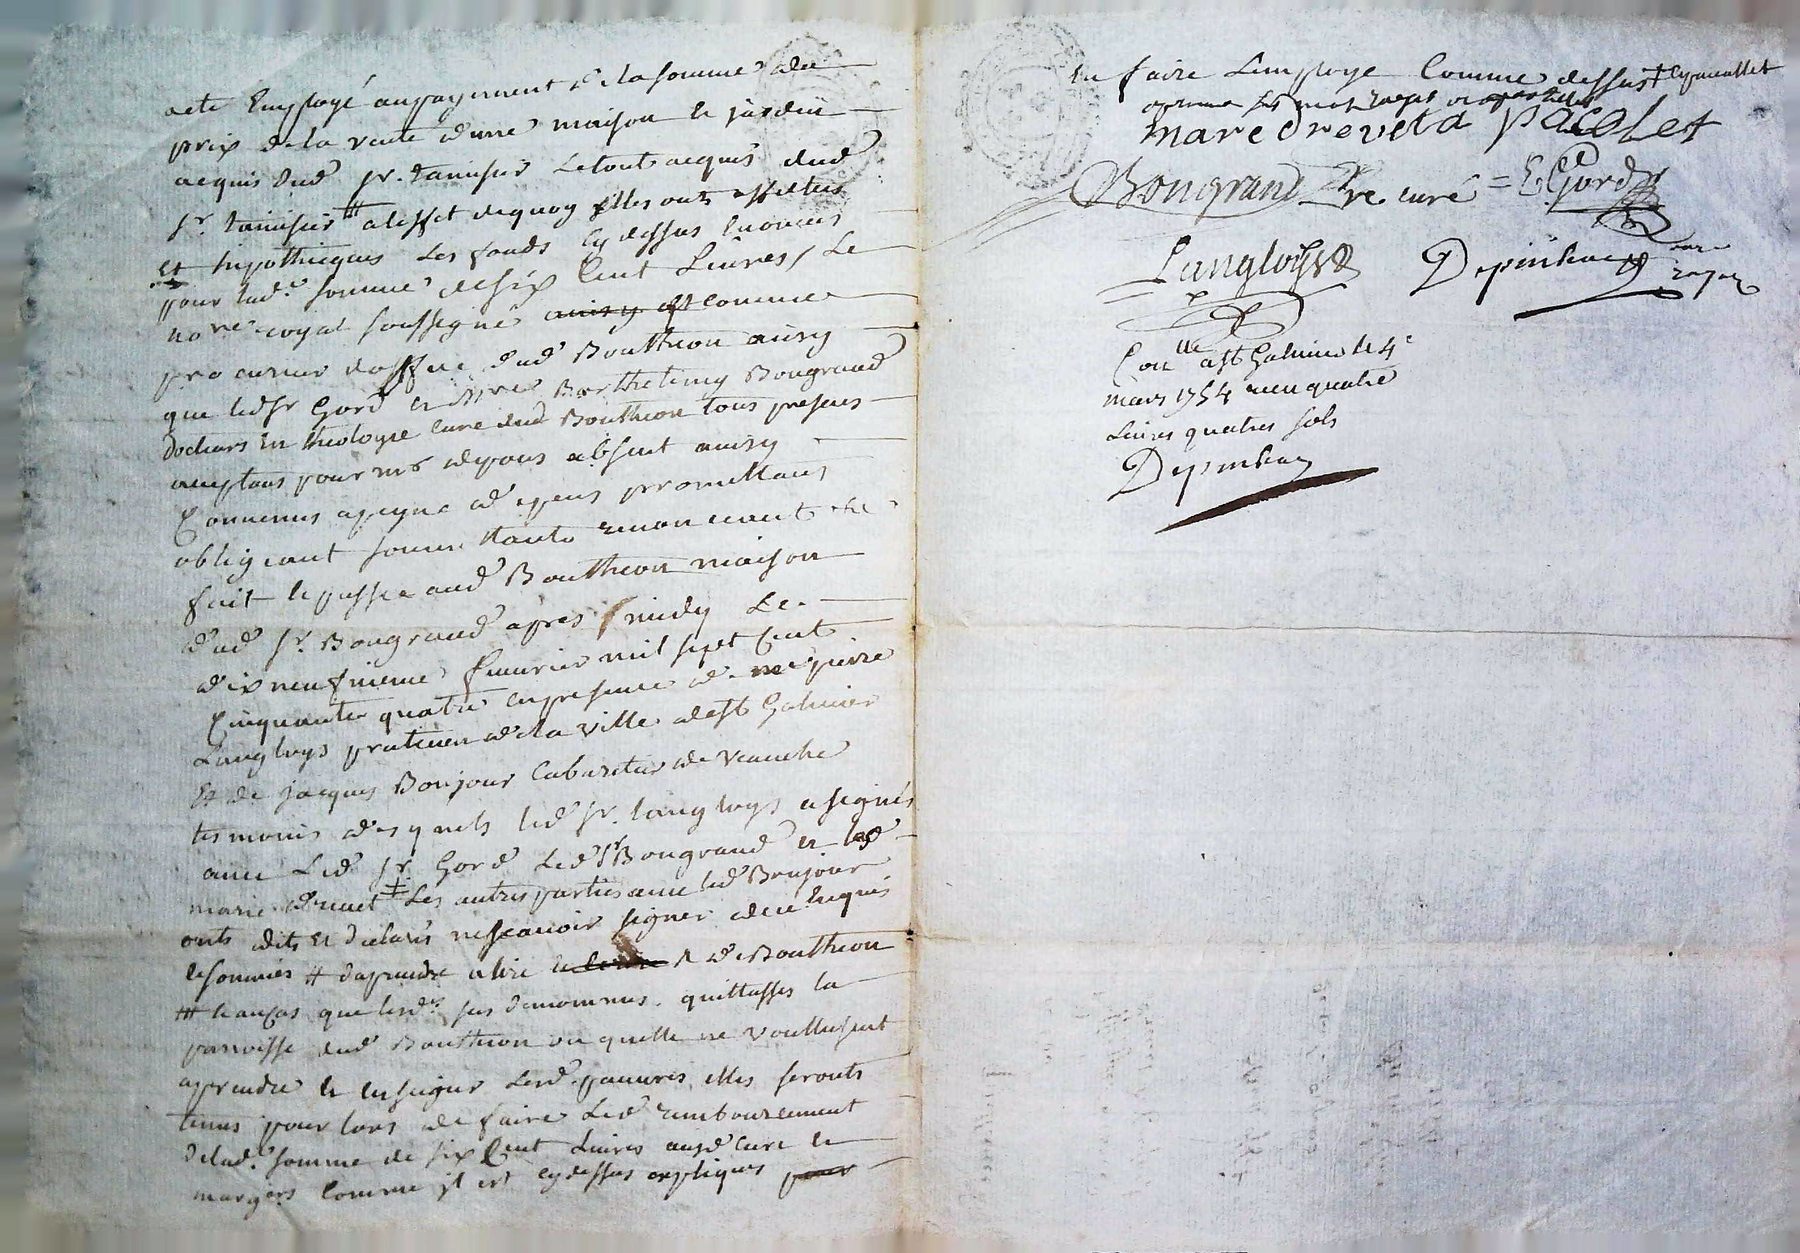 acte Employé au payement de la somme du
prix de la vente d'une maison et jardin
acquis dud. sr. tanisier Le tout acquis dud
sr. tanisier # a leffet de quoy elles onts affectés
et hipothecqués Les fonds cy dessus Enoncés
pour lad.e somme de six Cent Livres / Le
no.re royal soussigné ainsy est comme
procureur doffice dud Boutheon ainsy
que led sr Gord et Mre Barthelemy Bongrand
docteurs En theologie Curé dud Boutheon tous presens
acceptans pour ms depons absent ainsy
Convenus a peyne de depens promettans
obligeant soum. tants renoncants &c
fait et passé aud Boutheon maison
dud sr. Bongrand apres midy Le
dix neufvieme fevrier mil sept Cent
Cinquante quatre en presence de me pierre
Langloys praticien de la ville de st Galmier
Et de jacques Bonjour Cabaretier de Veauche
tesmoins desquels led sr. langloys a signés
avec Led sr. Gord Led sr Bongrand et lad
marie drevet ‡ Les autres parties avec led Bonjour
onts dits et declarés ne scavoir signer de ce enquis
et sommés # daprendre a lire et de Boutheon
# en cas que lesd. sus denommés quittasses la
parroisse dud Boutheon ou quelle ne voullusent
aprendre et enseigner Lesd. pauvres elles seronts
tenus pour lors de faire Led rembourcement
de lad. somme de six Cent Livres ausd curé et
margers comme il est cy dessus expliqués pour
En faire Lemploye Comme dessus ‡
marie drevet a pacolet
Bongrand Ptre curé = E Gord
Langloys
Depinhac no.re royal
Con.lle a st Galmier le 4e
mars 1754 receu quatre
Livres quatres sols
Depinhac